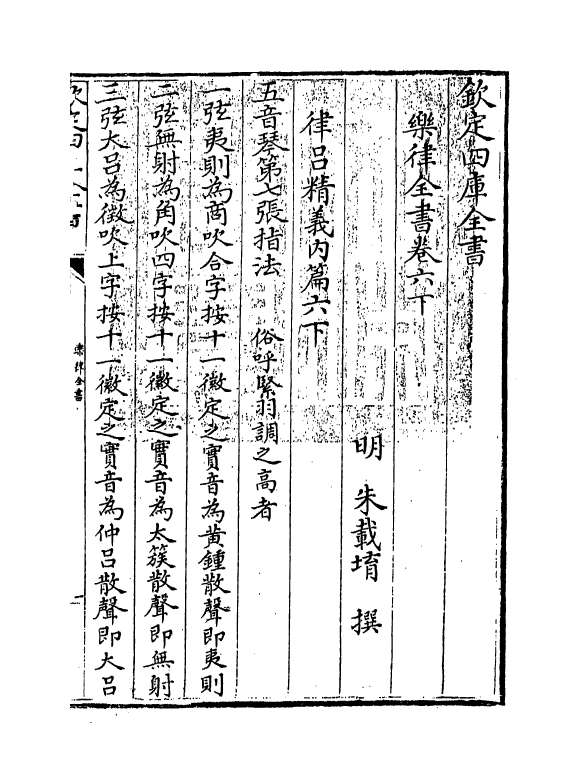 欽定四庫全書
樂律全書卷六下
明 朱載堉 撰
律呂精義內篇六下
五音琴第七張指法 俗呼緊羽調之高者
一弦夷則為商吹合字按十一徽定之實音為黃鍾散聲即夷則
二弦無射為角吹四字按十一徽定之實音為太簇散聲即無射
三弦大呂為徵吹上字按十一徽定之實音為仲呂散聲即大呂
樂律全書